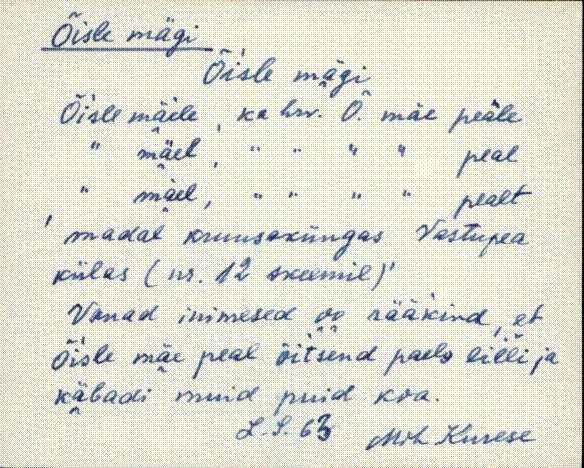 Õisle mägi
Õisle mägi
Õisle mäele, ka hrv. Õ. mäe peale
" mäel, " " " " peal
" mäel, " " " " pealt
'madal kruusaküngas Vastupea
külas (nr. 12 skeemil)'
Vanad inimesed oo rääkind, et
Õisle mäe peal õitsend palls lilli ja
kabadi muid puid koa.
L. S. 63 Mih Kurese